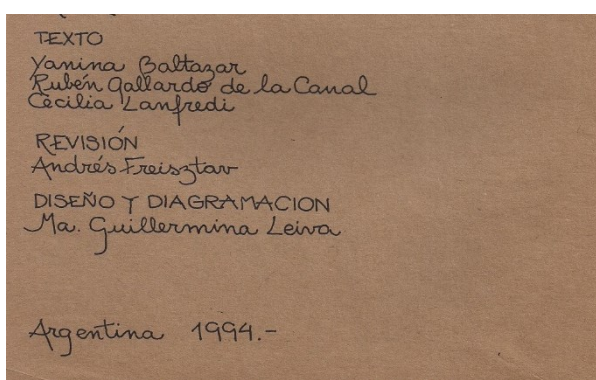 TEXTO
Yanina Baltazar
Rubén Gallardo de la Canal
Cecilia Lanfredi
REVISIÓN
Andrés Freisztav
DISEÑO Y DIAGRAMACION
Ma. Guillermina Leiva
Argentina 1994.-